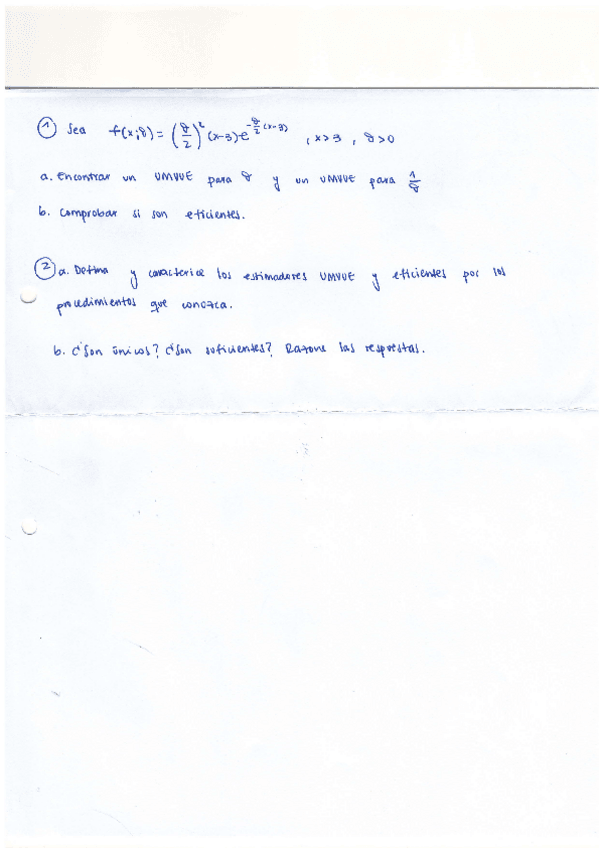 ① Sea f(x;θ) = (θ/2)² (x-3) e^{-θ/2 (x-3)} , x>3 , θ>0
a. Encontrar un UMVUE para θ y un UMVUE para 1/θ
b. Comprobar si son eficientes.
② a. Defina y caracterice los estimadores UMVUE y eficientes por los
procedimientos que conozca.
b. ¿Son únicos? ¿Son suficientes? Razone las respuestas.